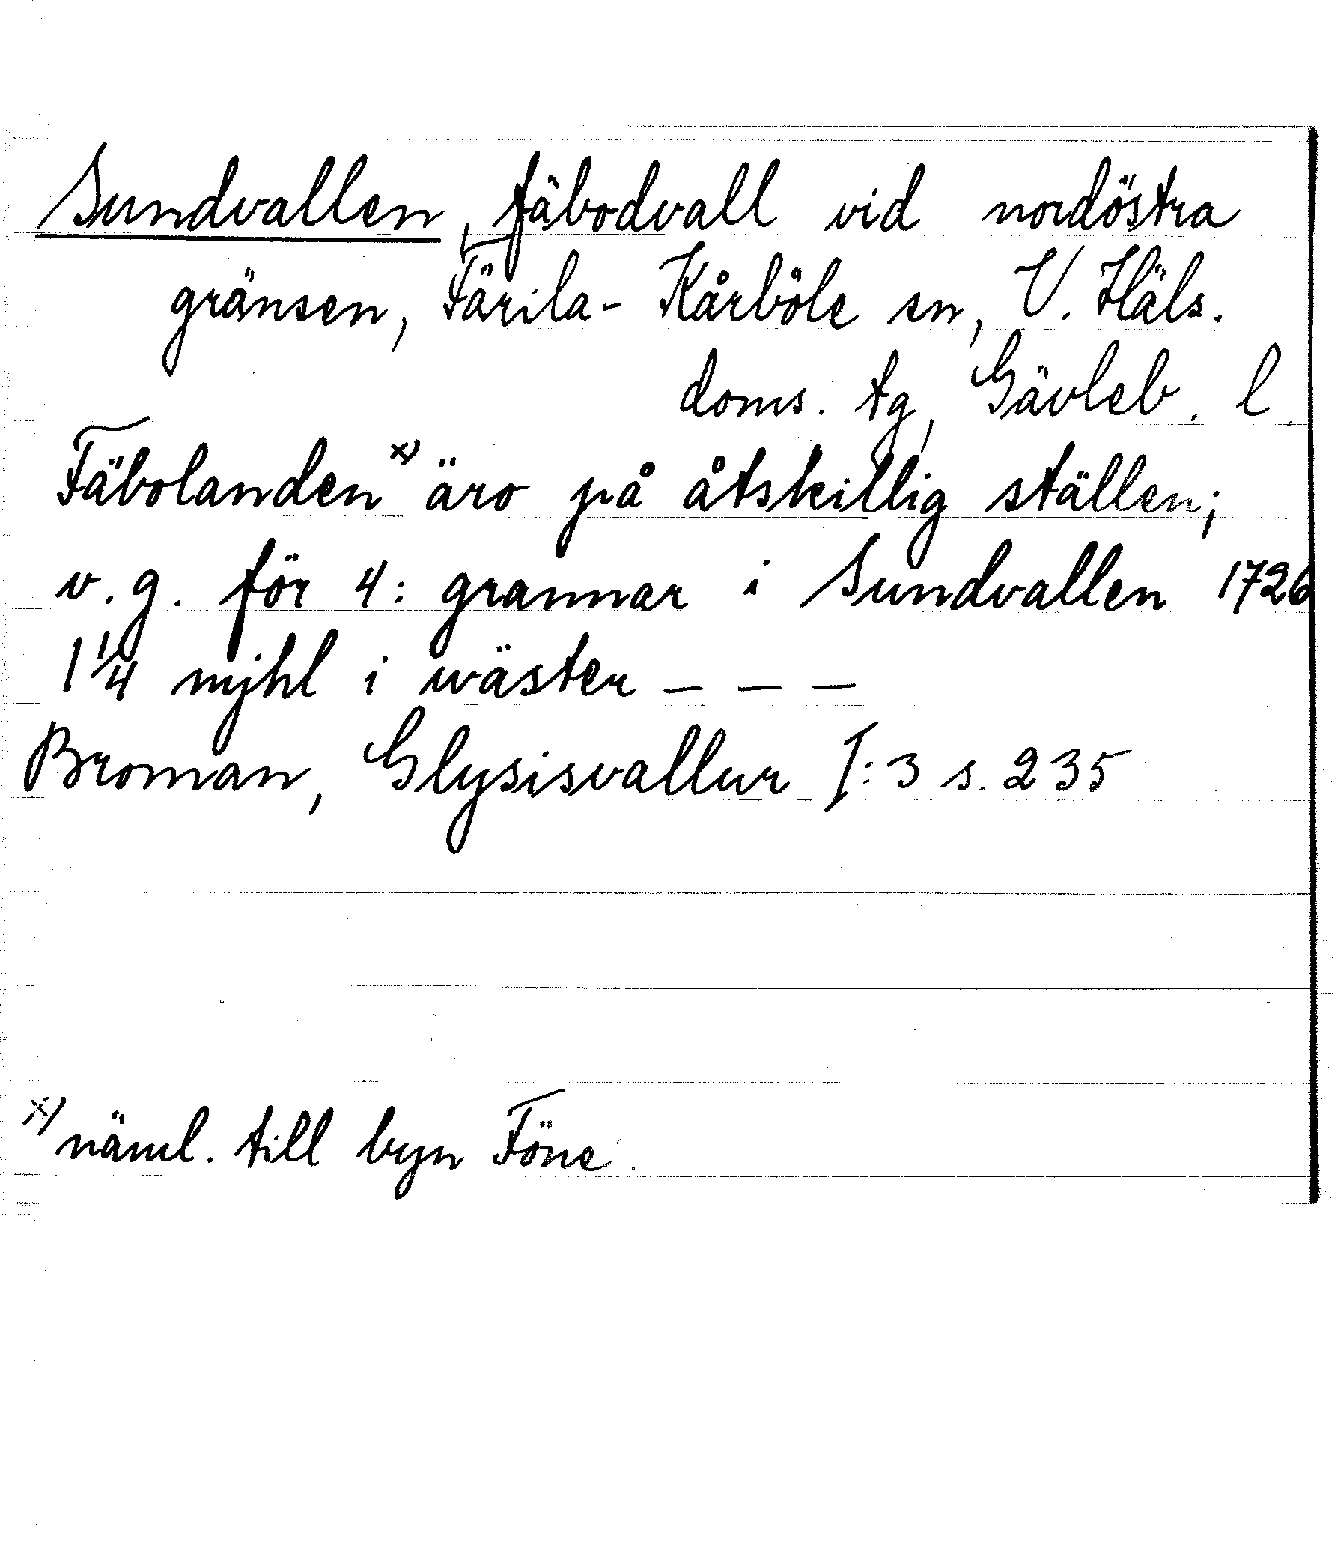 Sundvallen, fäbodvall vid nordöstra
gränsen, Färila- Kårböle sn, V. Häls.
doms. tg, Gävleb. l.
Fäbolanden x) äro på åtskillig ställen;
v. g. för 4: grannar i Sundvallen 1726
1 1/4 mjhl i wäster — — —
Broman, Glysisvallur I:3 s. 235
x) näml. till byn Föne.